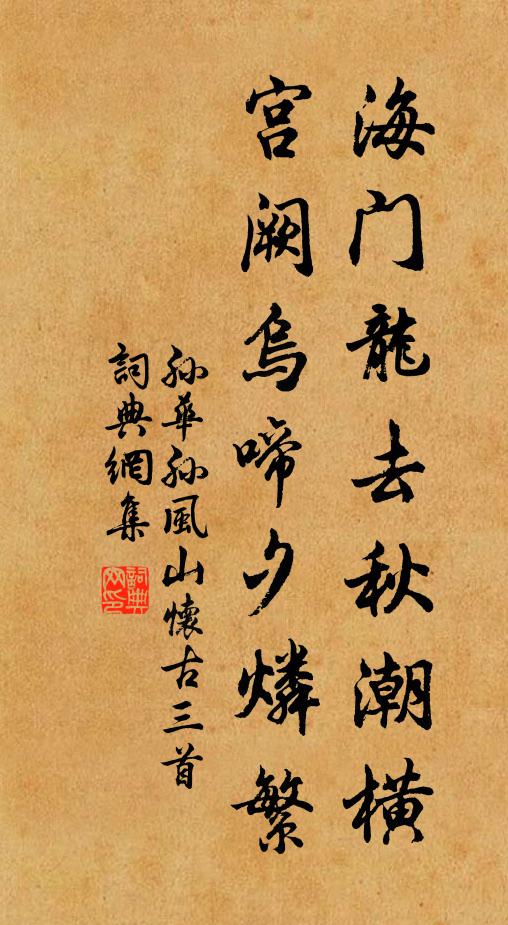 海门龍去秋潮横
宫阙烏啼夕燐繁
孙華孙風山懷古三首
詞典網集
詞典网印